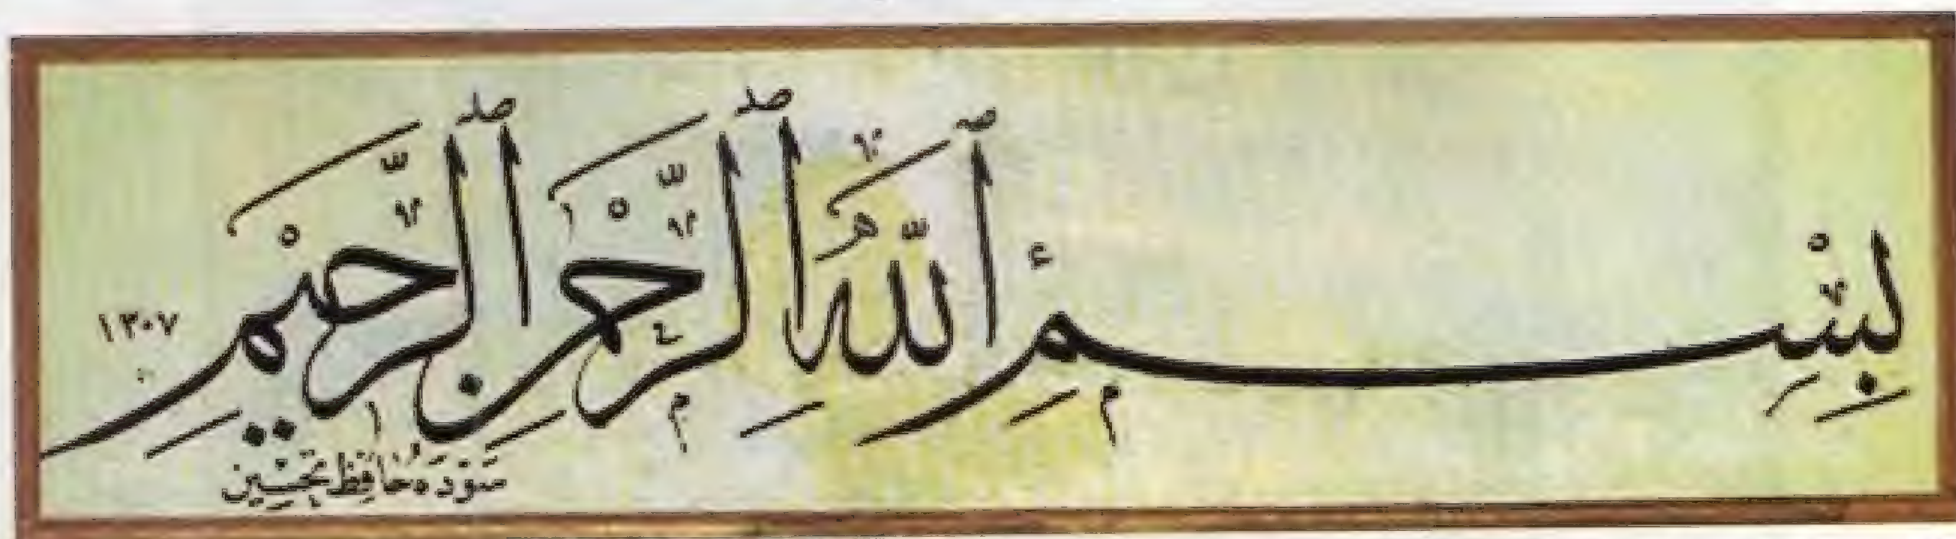 بِسْمِ ٱللَّهِ ٱلرَّحْمَٰنِ ٱلرَّحِيمِ
١٣٠٧
سوده حافظ تحسين